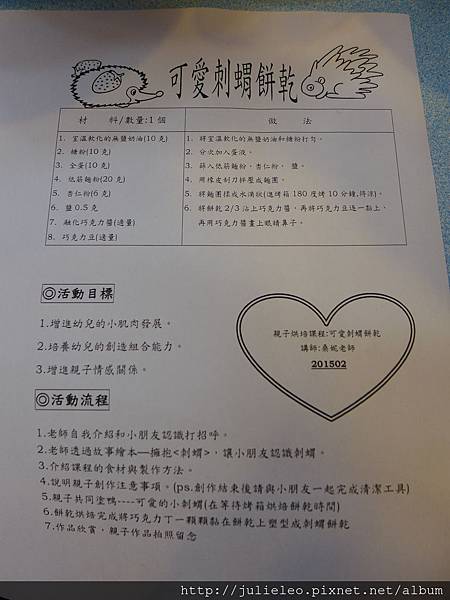 可愛刺蝟餅乾
材　　料/數量:1個
做　　法
1. 室溫軟化的無鹽奶油(10克)
2. 糖粉(10克)
3. 全蛋(10克)
4. 低筋麵粉(20克)
5. 杏仁粉(6克)
6. 鹽0.5克
7. 融化巧克力醬(適量)
8. 巧克力豆(適量)
1. 將室溫軟化的無鹽奶油和糖粉打勻。
2. 分次加入蛋液。
3. 篩入低筋麵粉、杏仁粉、鹽。
4. 用橡皮刮刀拌壓成麵團。
5. 將麵團揉成水滴狀(進烤箱180度烤10分鐘,待涼)。
6. 將餅乾2/3沾上巧克力醬，再將巧克力豆逐一黏上，
再用巧克力醬畫上眼睛鼻子。
◎活動目標
1.增進幼兒的小肌肉發展。
2.培養幼兒的創造組合能力。
3.增進親子情感關係。
親子烘焙課程:可愛刺蝟餅乾
講師:桑妮老師
201502
◎活動流程
1.老師自我介紹和小朋友認識打招呼。
2.老師透過故事繪本—擁抱<刺蝟>，讓小朋友認識刺蝟。
3.介紹課程的食材與製作方法。
4.說明親子創作注意事項。(ps.創作結束後請與小朋友一起完成清潔工具)
5.親子共同塗鴨----可愛的小刺蝟(在等待烤箱烘焙餅乾時間)
6.餅乾烘焙完成將巧克力丁一顆顆黏在餅乾上塑型成刺蝟餅乾
7.作品欣賞，親子作品拍照留念
http://julieleo.pixnet.net/album